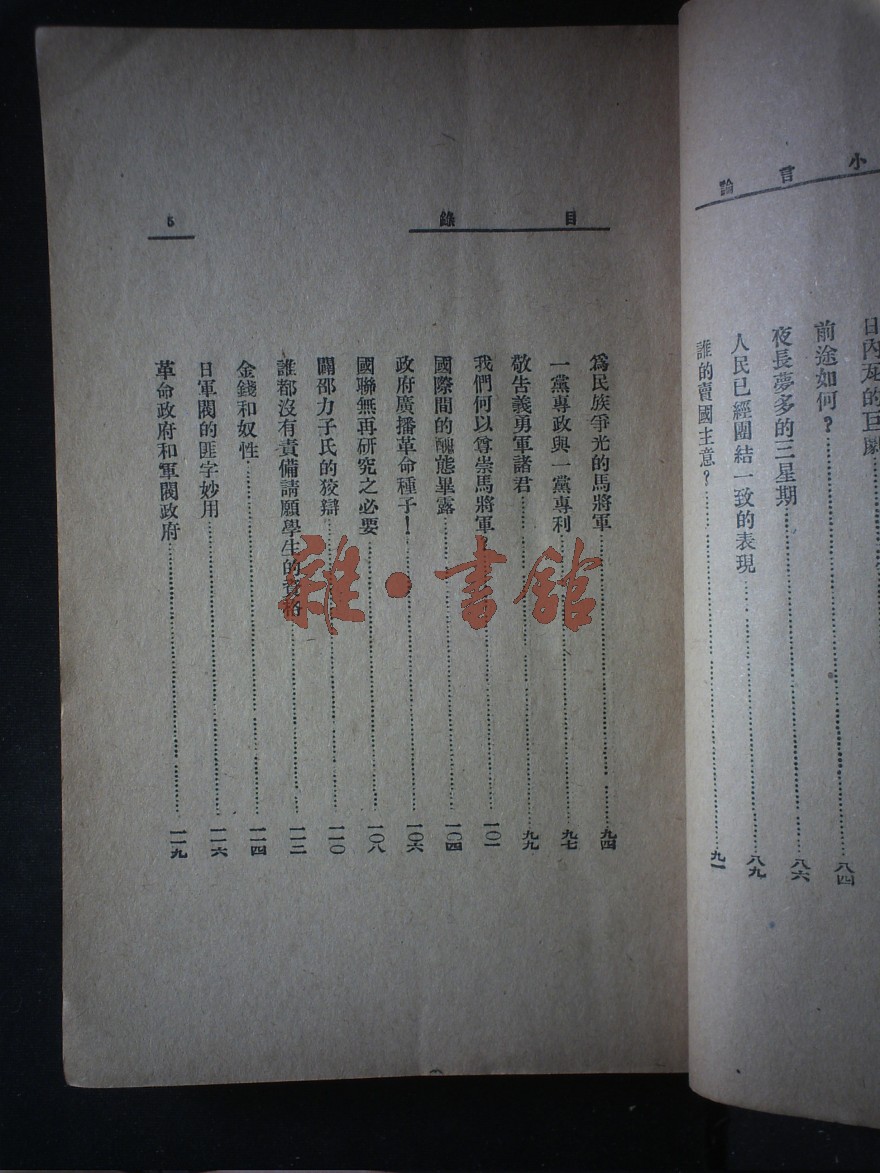 小言論
前途如何？……八四
夜長夢多的三星期……八六
人民已經團結一致的表現……八九
誰的賣國主意？……九一
目錄
5
爲民族爭光的馬將軍……九四
一黨專政與一黨專利……九七
敬告義勇軍諸君……九九
我們何以尊崇馬將軍……一〇一
國際間的醜態畢露……一〇四
政府廣播革命種子！……一〇六
國聯無再研究之必要……一〇八
闢邵力子氏的狡辯……一一〇
誰都沒有責備請願學生的資格……一一二
金錢和奴性……一一四
日軍閥的匪字妙用……一一六
革命政府和軍閥政府……一一九
雜·書館